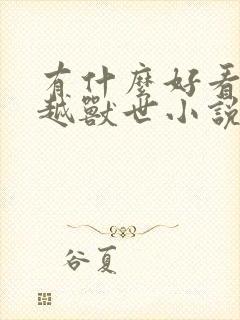 有什麼好看
越獸世小說
谷夏